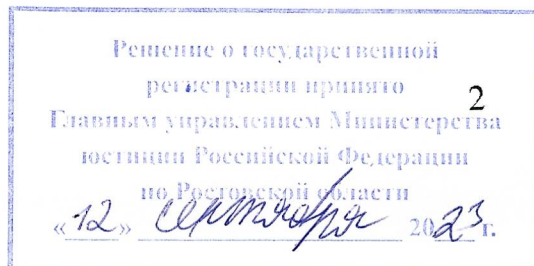 Решение о государственной
регистрации принято
2
Главным управлением Министерства
юстиции Российской Федерации
по Ростовской области
«12» сентября 2023 г.